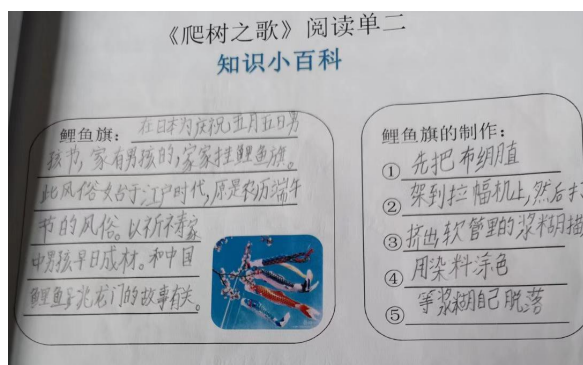 《爬树之歌》阅读单二
知识小百科
鲤鱼旗：在日本为庆祝五月五日男
孩节，家有男孩的，家家挂鲤鱼旗。
此风俗始于江户时代，原是
节的风俗。以祈祷家
中男孩早日成材。和中国
鲤鱼跳龙门的故事有关。
鲤鱼旗的制作：
①先把布绷直
②架到拉幅机上，然后
③挤出软管里的浆糊描
④用染料涂色
⑤等浆糊自己脱落